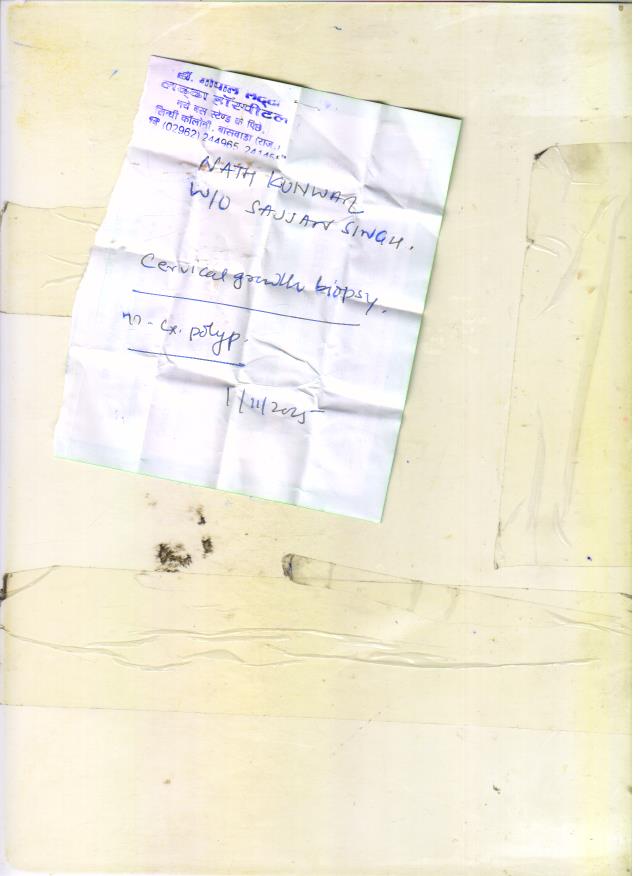 डॉ. गोपाल लड्ढा
लड्ढा हॉस्पीटल
नये बस स्टेण्ड के पिछे,
सिन्धी कॉलोनी, बासवाडा (राज.)
(02962) 244965,
NATH KUNWAR
W/O SAJJAN SINGH.
Cervical growth biopsy.
Cx. polyp.
1/11/2025